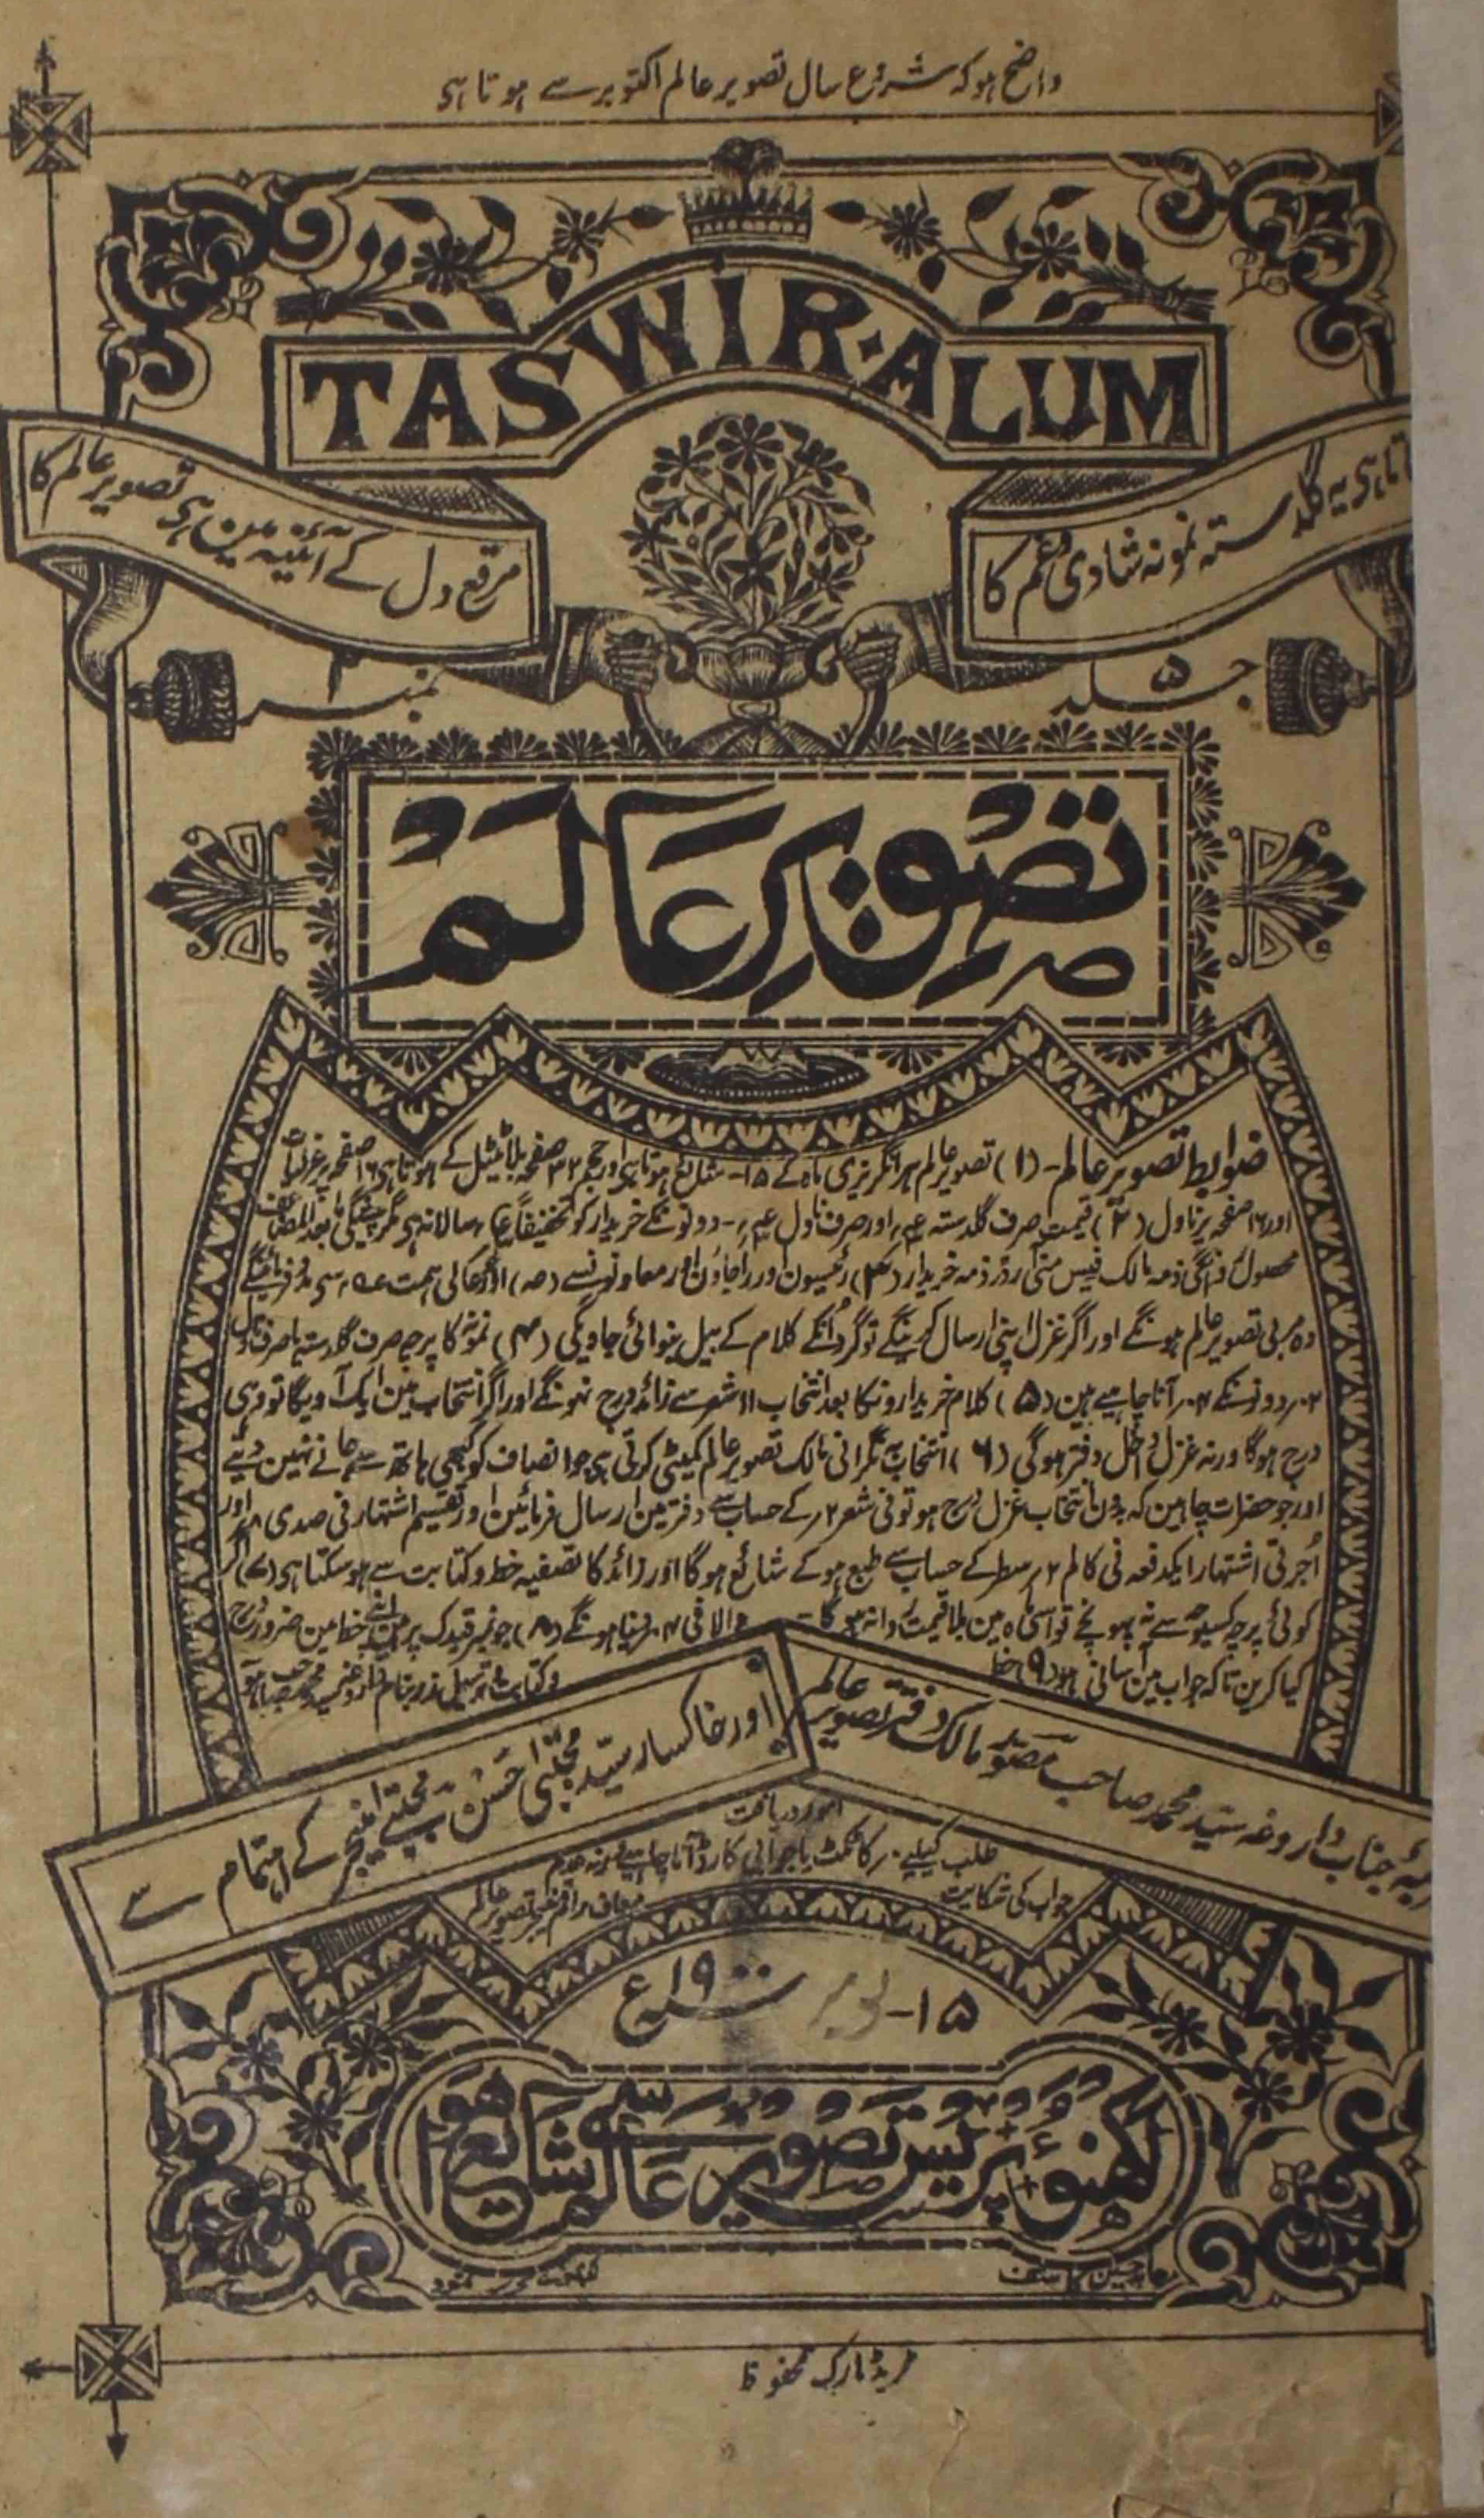 واضح ہو کہ شروع سال تصویر عالم اکتوبر سے ہوتا ہی
TASWIR·ALUM
تا ہی یہ گلدستہ نمونہ شادی و غم کا
مرقع دل کے آئینہ مین ہی تصویر عالم کا
جلد ۵
نمبر
تصویر عالم
ضوابط تصویر عالم - (۱) تصویر عالم ہر انگریزی ماہ کے ۱۵- شائع ہوتا ہی اور حجم ۳۲ صفحہ بلا ٹیٹل کے ہوتا ہی ۱۶ صفحہ پر غزلیات
اور ۱۶ صفحہ پر ناول (۲) قیمت صرف گلدستہ اور صرف ناول دونونکے خریدار کو تخفیفاً سالانہ ہی مگر پیشگی بعد
محصول ڈاک ذمہ مالک فیس منی آرڈر ذمہ خریدار (۳) رئیسون اور راجاؤن اور معاونونسے اگر عالی ہمت
وہ مربی تصویر عالم ہونگے اور اگر غزل اپنی ارسال کرینگے تو گرد اُنکے کلام کے بیل بنوائی جاویگی (۴) نمونہ کا پرچہ صرف گلدستہ یا صرف ناول
۲؍ دونونکے ۴؍ آنا چاہیے ہین (۵) کلام خریدارونکا بعد انتخاب ۱۱ شعر سے زائد درج نہونگے اور اگر انتخاب مین ایک آویگا تو وہی
درج ہوگا ورنہ غزل داخل دفتر ہوگی (۶) انتخاب بہ نگرانی مالک تصویر عالم کمیٹی کرتی ہی جو انصاف کو کبھی ہاتھ سے جانے نہین دیتے
اور جو حضرات چاہین کہ بدون انتخاب غزل درج ہو تو فی شعر ۲؍ کے حساب سے دفتر مین ارسال فرمائین اور تقسیم اشتہار فی صدی ۸؍ اور
اُجرتی اشتہار ایکدفعہ فی کالم ۲؍ سطر کے حساب سے طبع ہو کے شائع ہوگا اور زائد کا تصفیہ خط و کتابت سے ہو سکتا ہی (۷) اگر
کوئی پرچہ کسیوجہ سے نہ پہونچے تو اسی ماہ مین بلا قیمت روانہ ہوگا والا فی ۴؍ دینا ہونگے (۸) جو نمبر قید ک پر ہی اپنے خط مین ضرور درج
کیا کرین تاکہ جواب مین آسانی ہو (۹) خط و کتابت و ترسیل زر بنام داروغہ سید محمد صاحب
جناب داروغہ سید محمد صاحب مصور مالک دفتر تصویر عالم
اور خاکسار سید مجتبیٰ احسن مجتبے منیجر کے اہتمام سے
امور دریافت
طلب کیلیے ٹکٹ یا جوابی کارڈ آنا چاہیے ورنہ عدم
جواب کی شکایت معاف راقم منیجر تصویر عالم
۱۵- نومبر سنہ ۱۹۰۰ع
لکھنؤ پریس تصویر عالم سے شائع ہوا
ٹریڈ مارک محفوظ